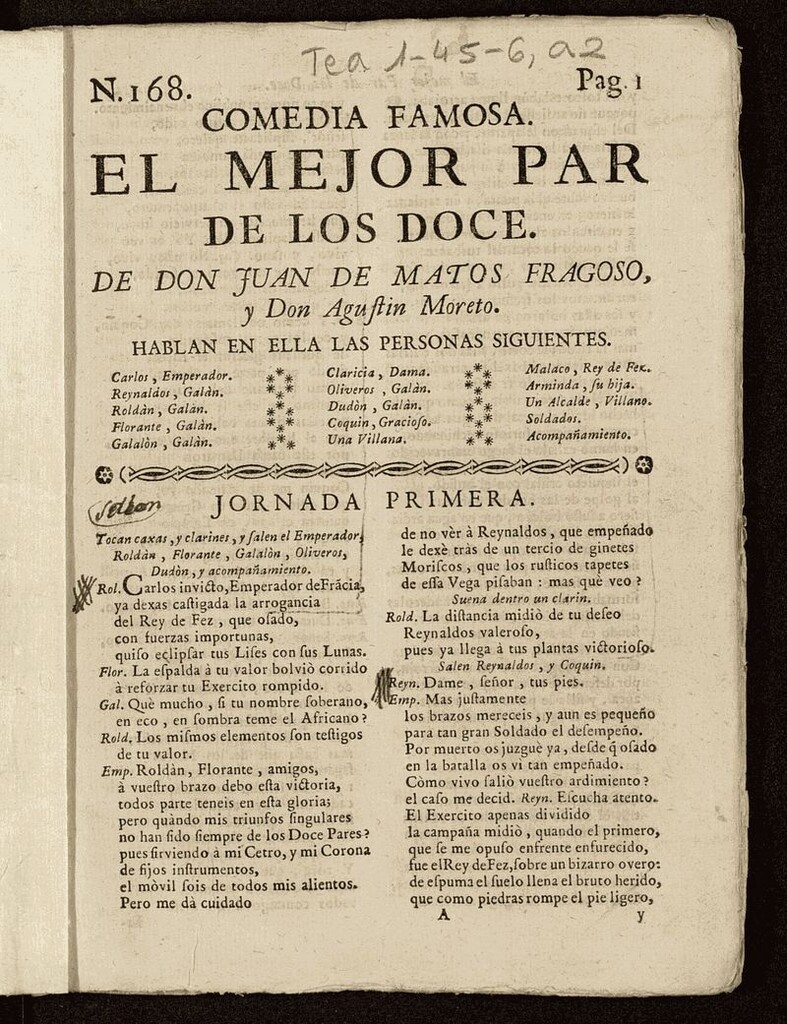 Tea 1-45-6, a2
N. 168.
Pag. 1
COMEDIA FAMOSA.
EL MEJOR PAR
DE LOS DOCE.
DE DON JUAN DE MATOS FRAGOSO,
y Don Aguſtin Moreto.
HABLAN EN ELLA LAS PERSONAS SIGUIENTES.
Carlos, Emperador.
Reynaldos, Galàn.
Roldàn, Galàn.
Florante, Galàn.
Galalòn, Galàn.
Claricia, Dama.
Oliveros, Galàn.
Dudòn, Galàn.
Coquin, Gracioſo.
Una Villana.
Malaco, Rey de Fez.
Arminda, ſu hija.
Un Alcalde, Villano.
Soldados.
Acompañamiento.
JORNADA PRIMERA.
Tocan caxas, y clarines, y ſalen el Emperador,
Roldàn, Florante, Galalòn, Oliveros,
Dudòn, y acompañamiento.
Rol. Carlos invicto, Emperador de Frãcia,
ya dexas caſtigada la arrogancia
del Rey de Fez, que oſado,
con fuerzas importunas,
quiſo eclipſar tus Liſes con ſus Lunas.
Flor. La eſpalda à tu valor bolviò corrido
à reforzar tu Exercito rompido.
Gal. Què mucho, ſi tu nombre ſoberano,
en eco, en ſombra teme el Africano?
Rold. Los miſmos elementos ſon teſtigos
de tu valor.
Emp. Roldàn, Florante, amigos,
à vueſtro brazo debo eſta victoria,
todos parte teneis en eſta gloria;
pero quàndo mis triunfos ſingulares
no han ſido ſiempre de los Doce Pares?
pues ſirviendo à mi Cetro, y mi Corona
de fijos inſtrumentos,
el mòvil ſois de todos mis alientos.
Pero me dà cuidado
de no vèr à Reynaldos, que empeñado
le dexè tràs de un tercio de ginetes
Moriſcos, que los ruſticos tapetes
de eſſa Vega piſaban: mas què veo?
Suena dentro un clarin.
Rold. La diſtancia midiò de tu deſeo
Reynaldos valeroſo,
pues ya llega à tus plantas victorioſo.
Salen Reynaldos, y Coquin.
Reyn. Dame, ſeñor, tus pies.
Emp. Mas juſtamente
los brazos mereceis, y aun es pequeño
para tan gran Soldado el deſempeño.
Por muerto os juzguè ya, deſde q̃ oſado
en la batalla os vi tan empeñado.
Còmo vivo ſaliò vueſtro ardimiento?
el caſo me decid. Reyn. Eſcucha atento.
El Exercito apenas dividido
la campaña midiò, quando el primero,
que ſe me opuſo enfrente enfurecido,
fue el Rey de Fez, ſobre un bizarro overo:
de eſpuma el ſuelo llena el bruto herido,
que como piedras rompe el pie ligero,
A
y